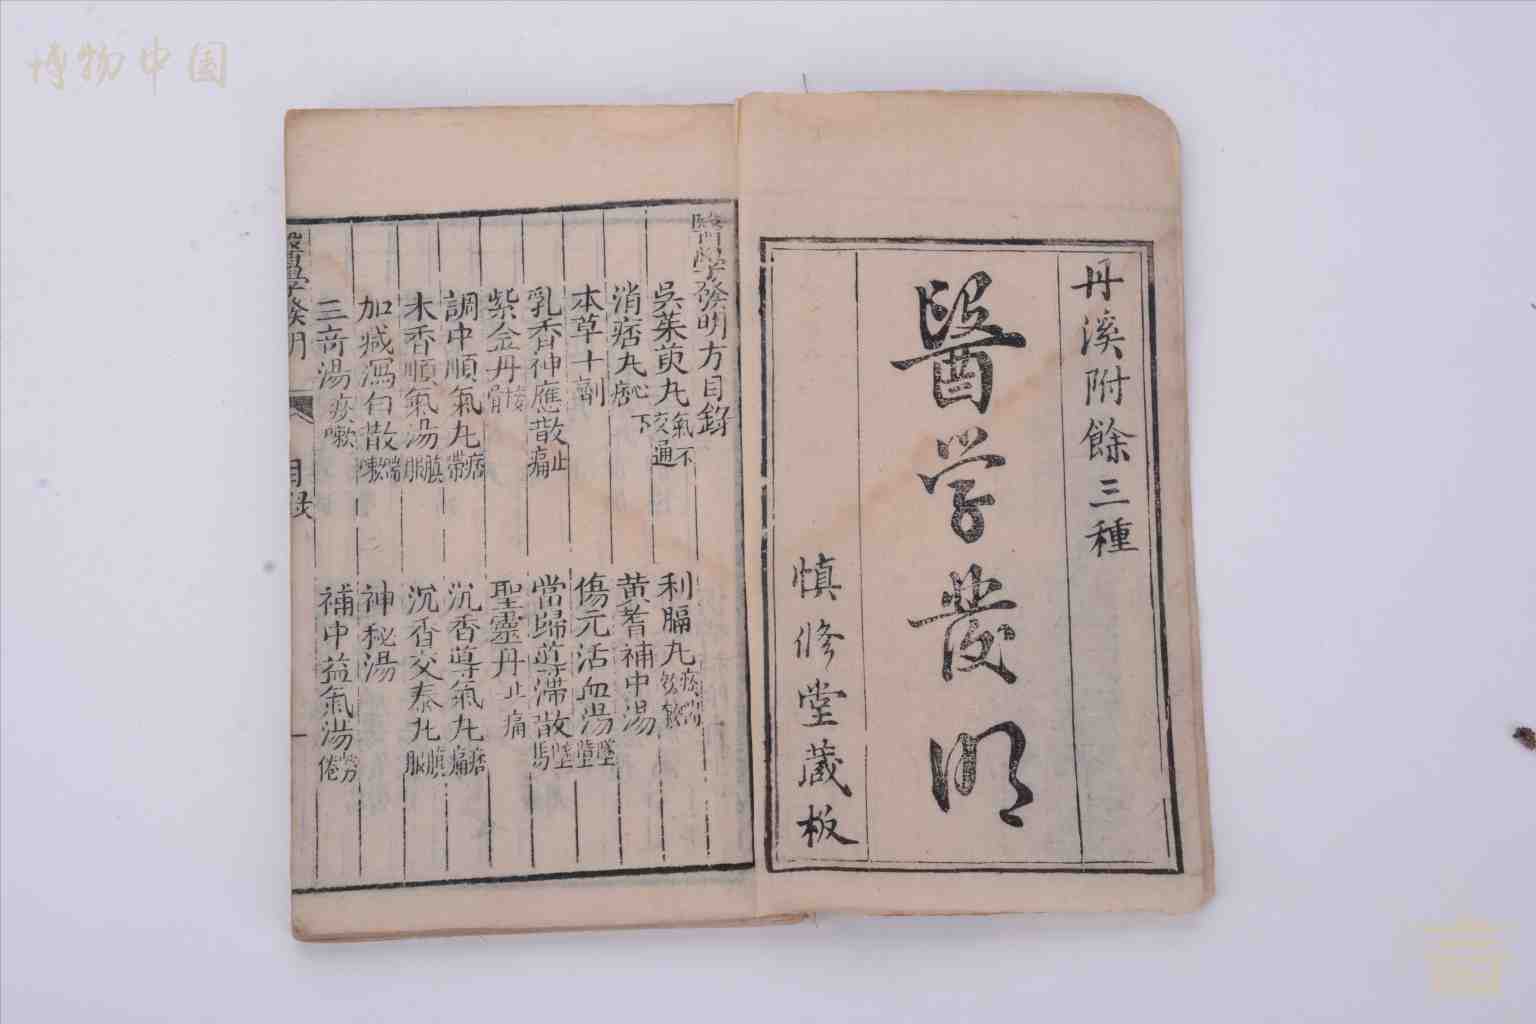 博物中国
丹溪附餘三種
醫学發明
慎修堂藏板
醫學發明方目錄
吳茱萸丸氣不交通
利膈丸
消痞丸心下痞
黄耆補中湯
本草十劑
傷元活血湯墜墮
乳香神應散止痛
當歸導滯散墜馬
紫金丹接骨
聖靈丹止痛
調中順氣丸痞滯
沉香導氣丸痞痛
木香順氣湯䐜脹
沉香交泰丸䐜脹
加减瀉白散喘嗽
神秘湯
三奇湯痰嗽
補中益氣湯勞倦
醫學發明
目錄
一